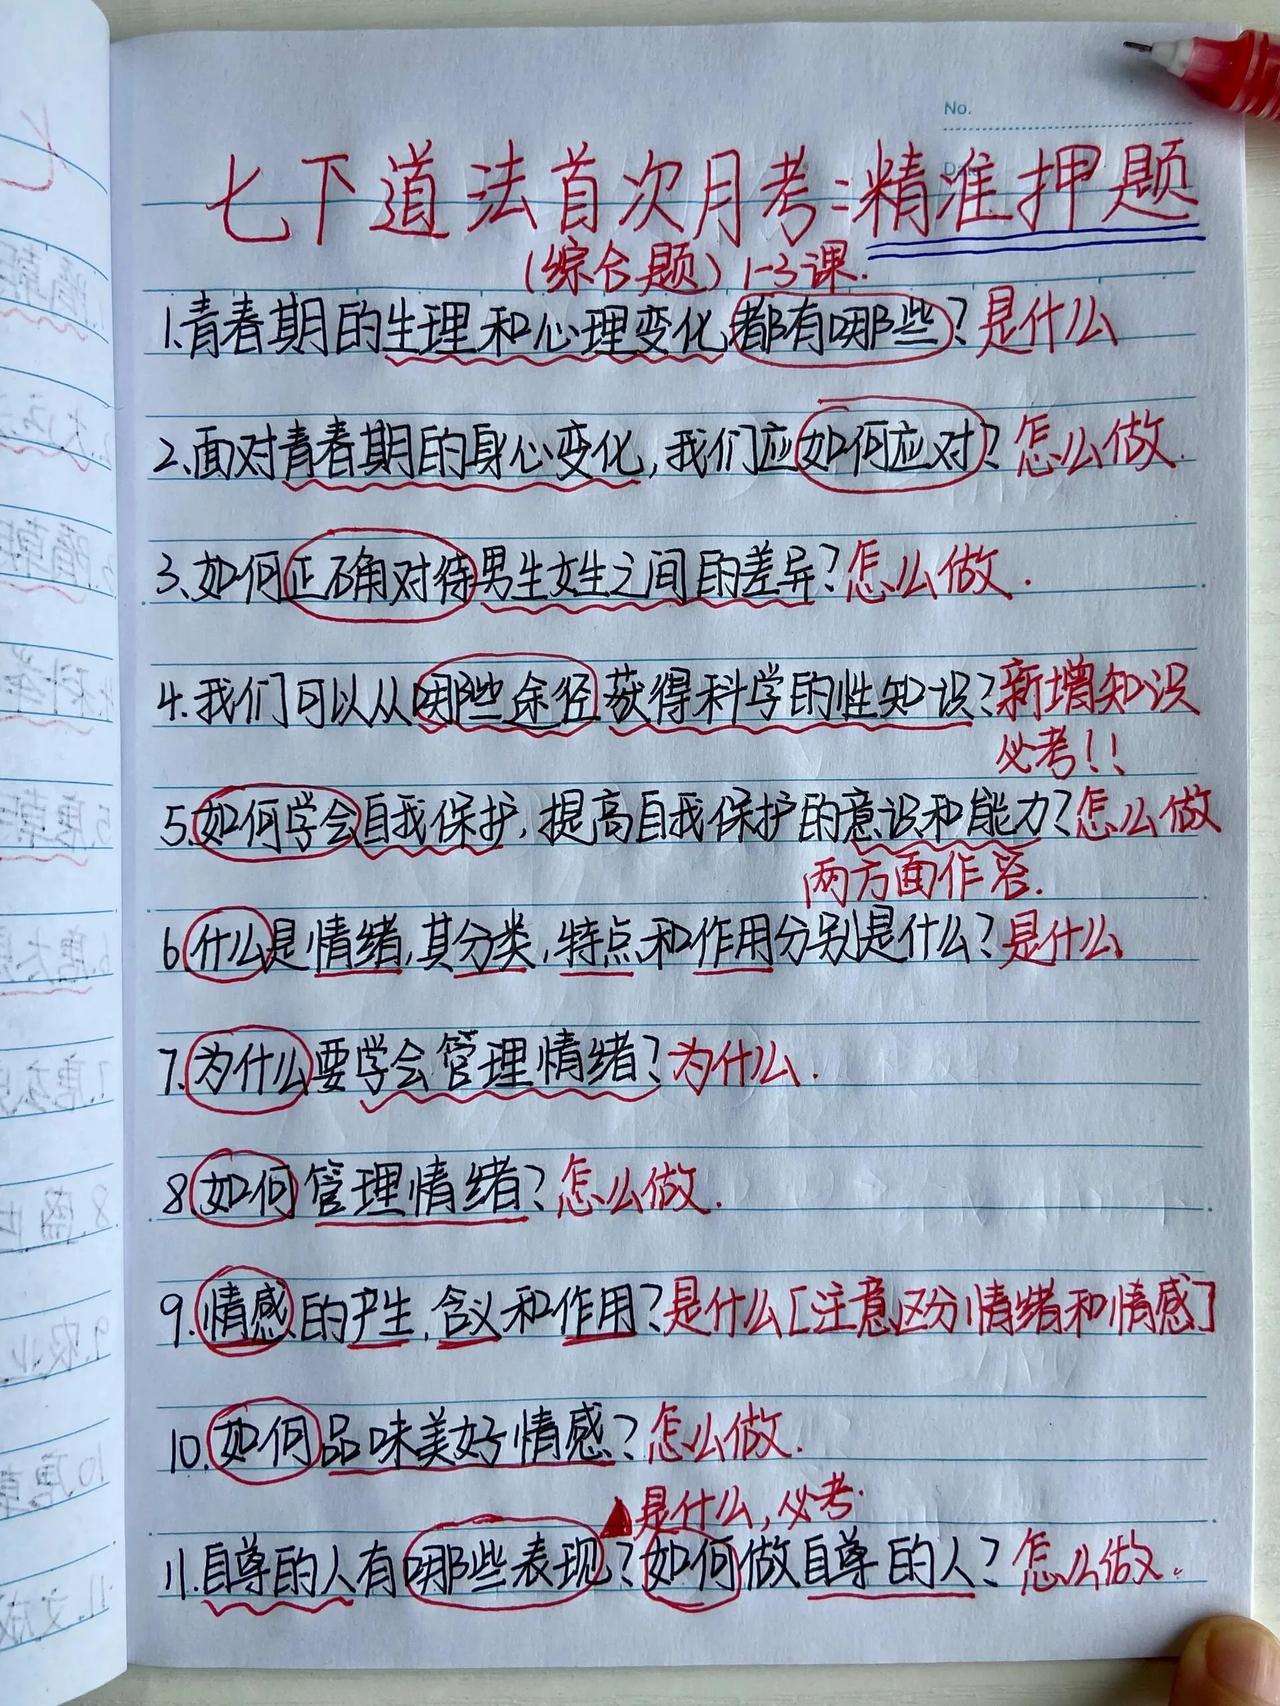 No.
七下道法首次月考:精准押题
(综合题)1-3课.
1.青春期的生理和心理变化都有哪些?是什么
2.面对青春期的身心变化,我们应如何应对?怎么做.
3.如何正确对待男生女生之间的差异?怎么做.
4.我们可以从哪些途径获得科学的性知识?新增知识
必考!!
5.如何学会自我保护,提高自我保护的意识和能力?怎么做
两方面作答.
6.什么是情绪,其分类,特点和作用分别是什么?是什么
7.为什么要学会管理情绪?为什么.
8.如何管理情绪?怎么做.
9.情感的产生,含义和作用?是什么[注意区分情绪和情感]
10.如何品味美好情感?怎么做.
▲是什么,必考.
11.自尊的人有哪些表现?如何做自尊的人?怎么做.